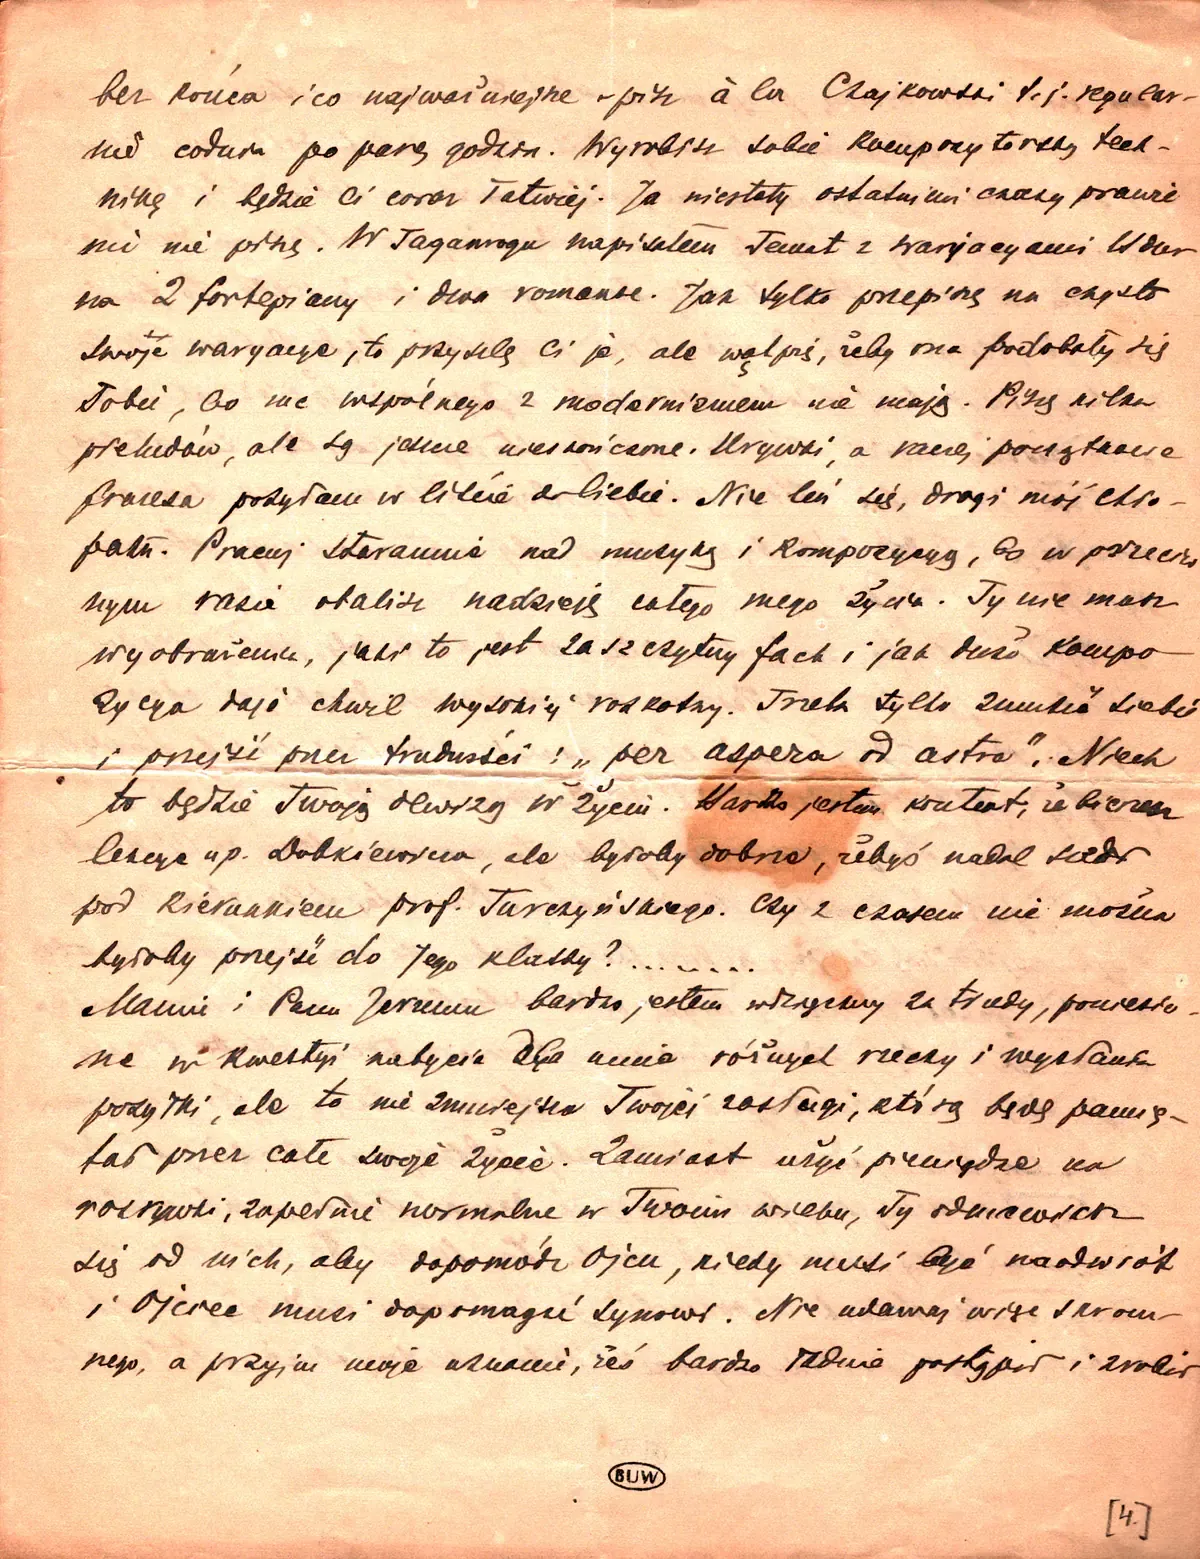 bez końca i co najważniejsze - pisz à la Czajkowski t.j. regular-
nie codzień po parę godzin. Wyrobisz sobie kompozytorską tech-
nikę i będzie Ci coraz łatwiej. Ja niestety ostatnimi czasy prawie
nic nie piszę. W Taganrogu napisałem Temat z waryacyami H dur
na 2 fortepiany i dwa romanse. Jak tylko przepiszę na czysto
swoje waryacye, to przyszlę Ci je, ale wątpię, żeby one podobały się
Tobie, bo nic wspólnego z modernizmem nie mają. Piszę kilka
preludów, ale są jeszcze nieskończone. Urywki, a raczej początkowe
frazesa posyłam w liście do Ciebie. Nie leń się, drogi mój chło-
paku. Pracuj starannie nad muzyką i kompozycyą, bo w przeciw
nym razie obalisz nadzieję całego mego życia. Ty nie masz
wyobrażenia, jaki to jest zaszczytny fach i jak dużo kompo
zycya daje chwil wysokiej rozkoszy. Trzeba tylko zmusić siebie
i przejść przez trudności: „per aspera ad astra". Niech
to będzie Twoją dewizą w życiu. Bardzo jestem kontent, że bierzesz
lekcye u p. Dobkiewicza, ale byłoby dobrze, żebyś nadal szedł
pod kierunkiem prof. Turczyńskiego. Czy z czasem nie można
byłoby przejść do Jego klassy? ........
Mamie i Panu Jerzemu bardzo jestem wdzięczny za trudy, poniesio-
ne w kwestyi nabycia dla mnie różnych rzeczy i wysłania
posyłki, ale to nie zmniejsza Twojej zasługi, którą będę pamię-
tał przez całe swoje życie. Zamiast użyć pieniądze na
rozrywki, zupełnie normalne w Twoim wieku, Ty odmawiasz
się od nich, aby dopomódz Ojcu, kiedy musi być naodwrót
i Ojciec musi dopomagać synowi. Nie udawaj więc skrom-
nego, a przyjm moje uznanie, żeś bardzo ładnie postąpił i zrobił
BUW
[4]